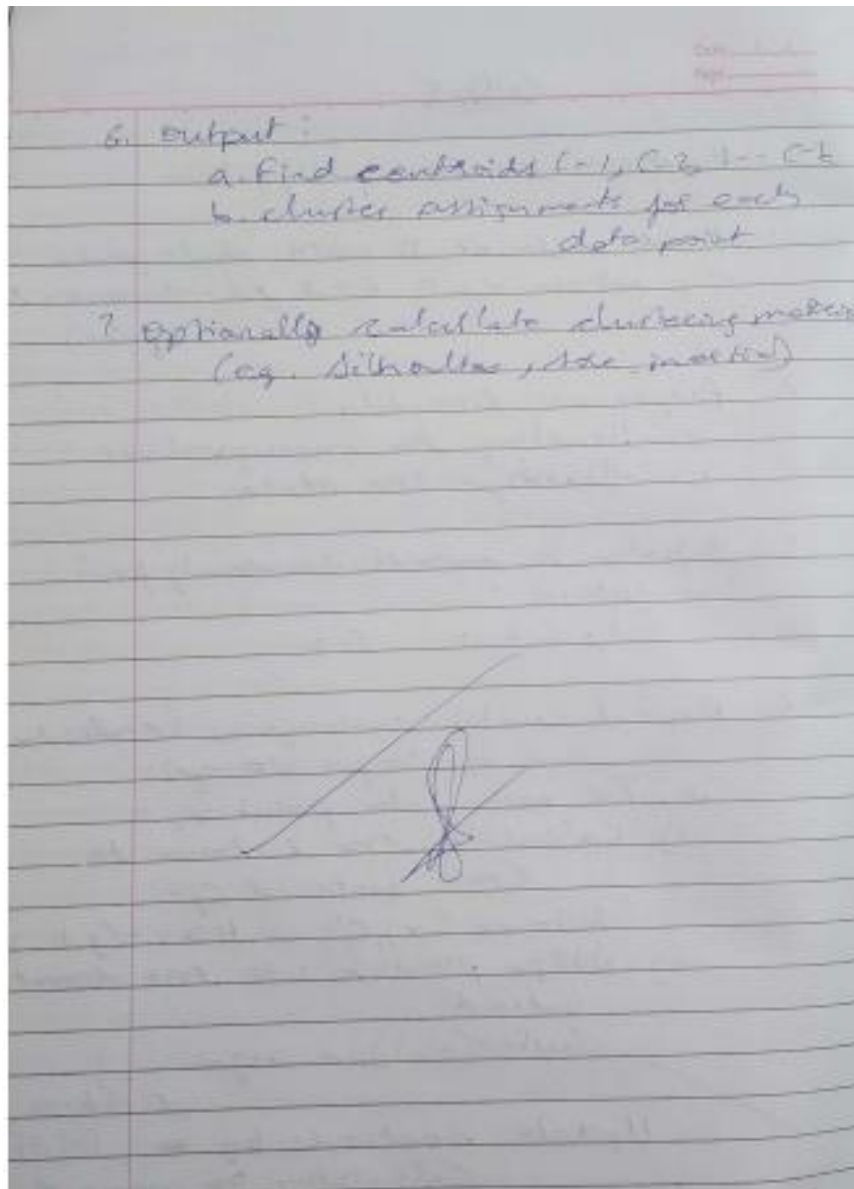 Date
Page
6. output :
a. Find centroids C-1, C-2, --- C-k
b. cluster assignments for each
data point
7 optionally calculate clustering
(eg. Silhoutte, inertia)